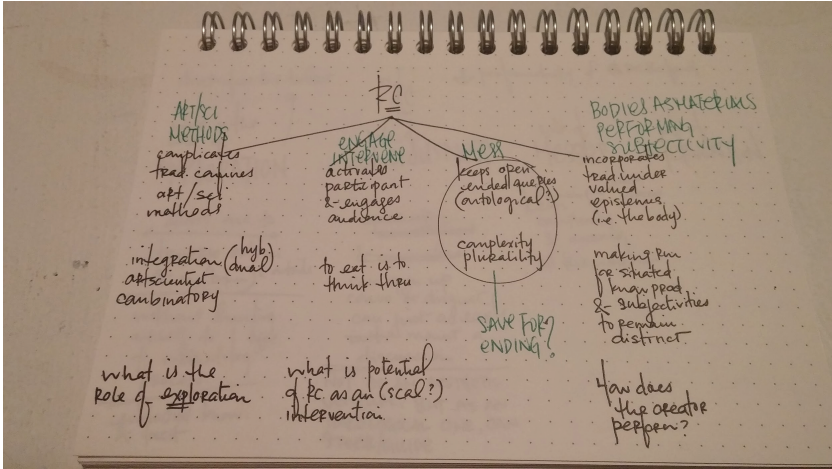 RC
ART/SCI
METHODS
complicates
trad. canines
art / sci
methods
integration (hyb.
dual)
artscientist
combinatory
what is the
role of exploration
ENGAGE
INTERVENE
activates
participant
& engages
audience
to eat is to
think thru
what is potential
of RC as an (scal?)
intervention
MESS
keeps open
ended queries
(ontological?)
complexity
plurality
SAVE FOR?
ENDING?
BODIES AS MATERIALS
PERFORMING
SUBJECTIVITY
incorporates
trad. under
valued
epistemes
(i.e. the body)
making rm
for situated
know prod
& subjectivities
to remain
distinct
How does
the creator
perform?